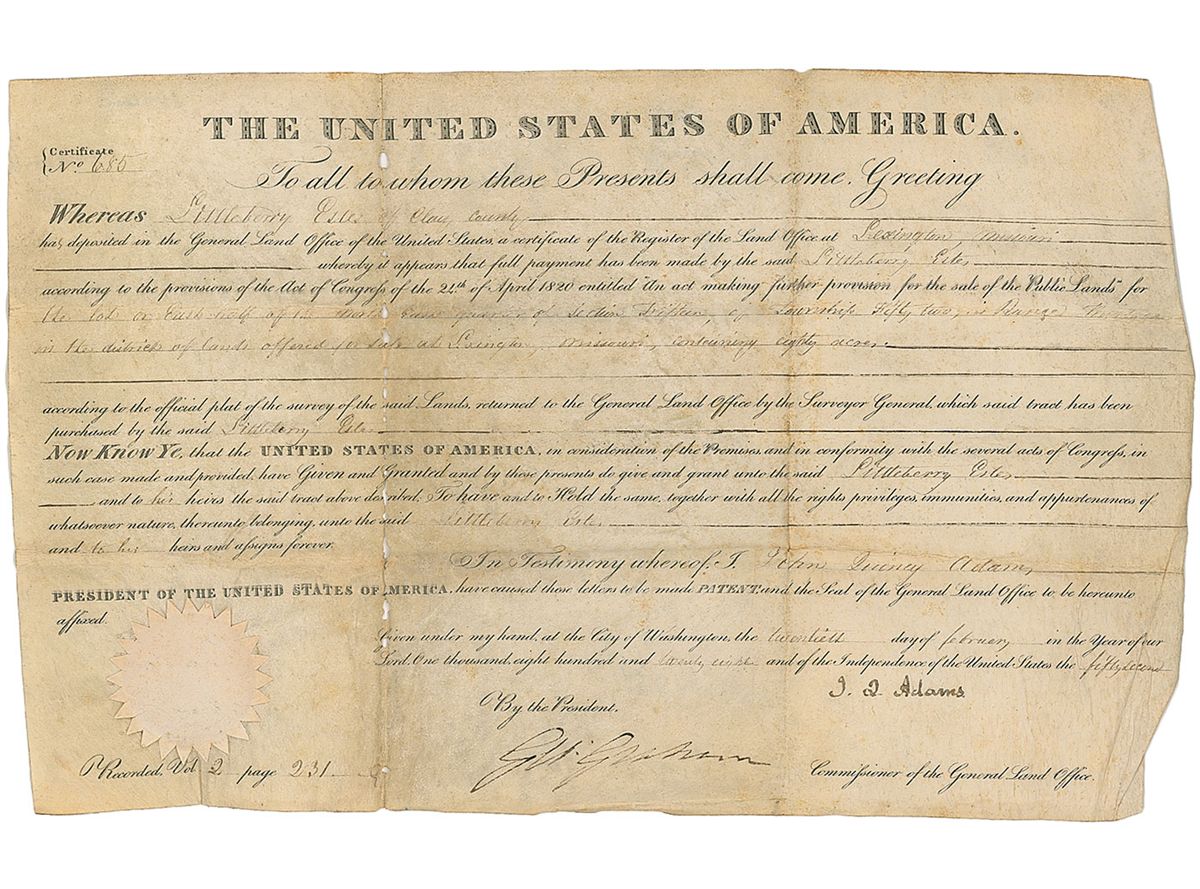 THE UNITED STATES OF AMERICA.
Certificate
No. 685
To all to whom these Presents shall come, Greeting
Whereas Littleberry Estes of Clay County
has deposited in the General Land Office of the United States, a certificate of the Register of the Land Office at Lexington, Missouri
whereby it appears that full payment has been made by the said Littleberry Estes
according to the provisions of the Act of Congress of the 24th of April 1820 entitled "An act making further provision for the sale of the Public Lands" for
the lot or East half of the North East quarter of Section Fifteen, of Township Fifty two, in Range
in the district of lands offered for sale at Lexington, Missouri, containing eighty acres.
according to the official plat of the survey of the said Lands, returned to the General Land Office by the Surveyor General, which said tract has been
purchased by the said Littleberry Estes
Now Know Ye, that the UNITED STATES OF AMERICA, in consideration of the Premises and in conformity with the several acts of Congress, in
such case made and provided, have Given and Granted and by these presents do give and grant unto the said Littleberry Estes
and to his heirs the said tract above described; To have and to Hold the same, together with all the rights privileges, immunities, and appurtenances of
whatsoever nature, thereunto belonging, unto the said Littleberry Estes
and to his heirs and assigns forever.
In Testimony whereof, I, John Quincy Adams
PRESIDENT OF THE UNITED STATES OF AMERICA, have caused these letters to be made PATENT, and the Seal of the General Land Office to be hereunto
affixed.
Given under my hand, at the City of Washington, the twentieth day of february in the Year of our
Lord, One thousand, eight hundred and twenty eight and of the Independence of the United States the fifty second
J. Q. Adams
By the President,
Geo: Graham
Recorded, Vol 2 page 231
Commissioner of the General Land Office.